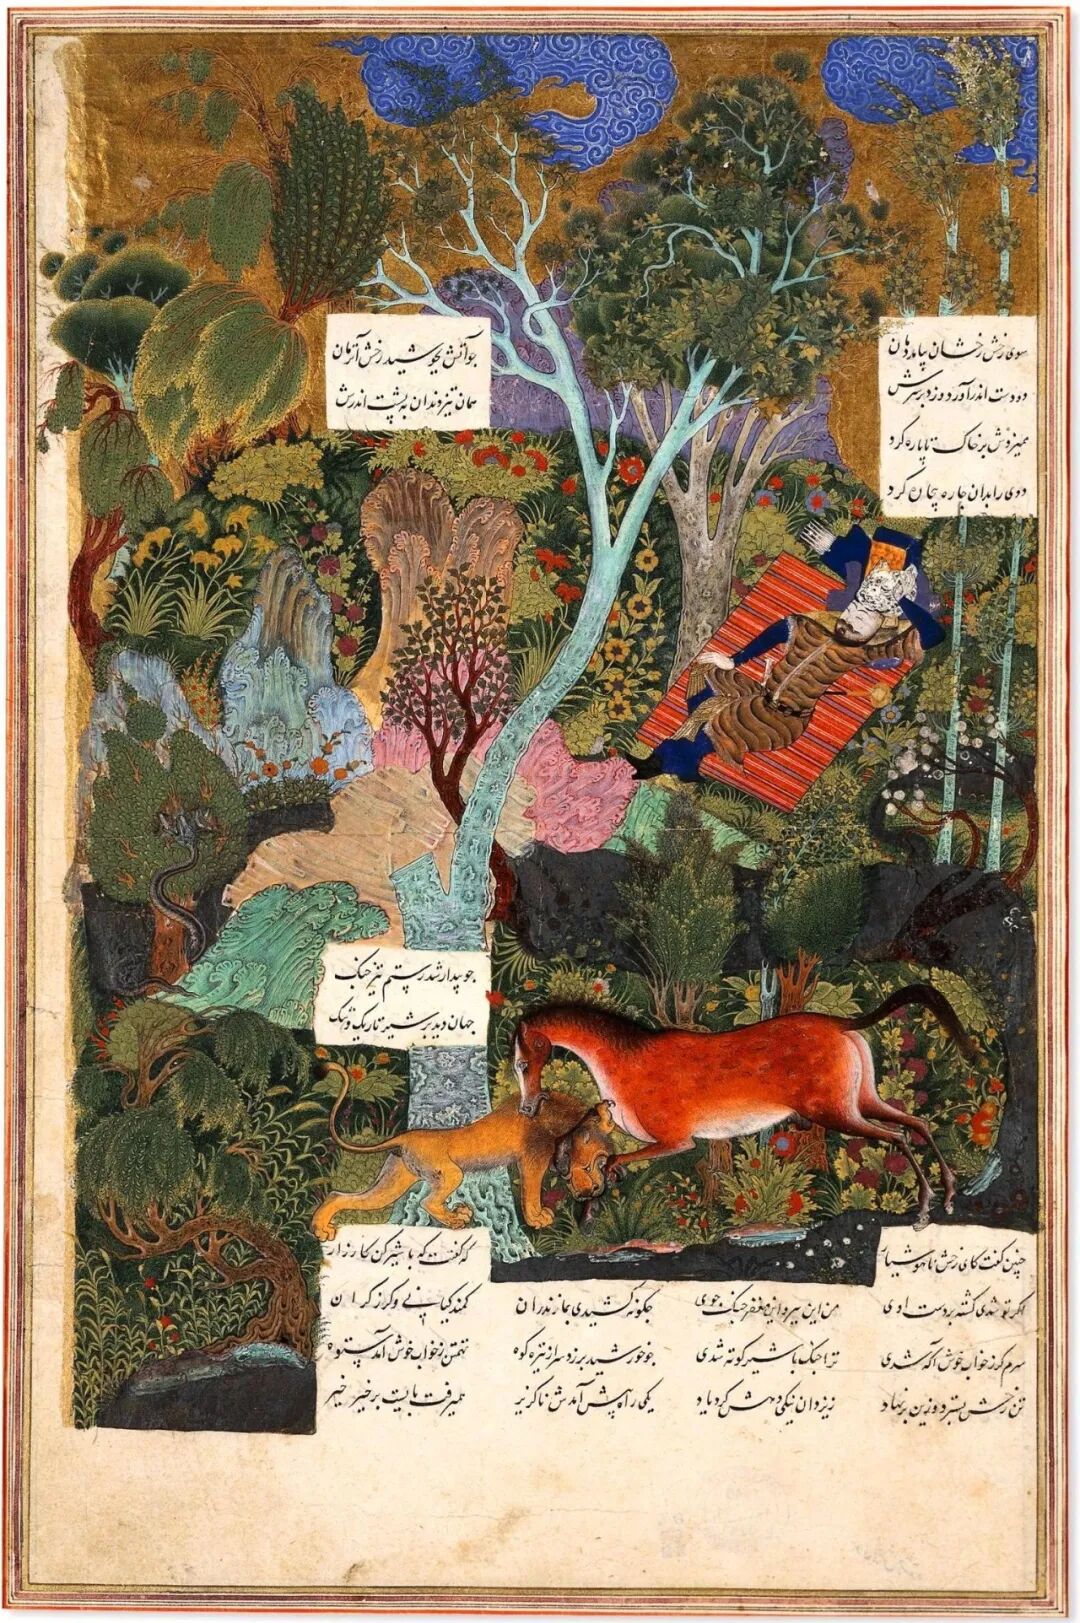 سوی رخش رخشان بیامد دمان
چو آتش بجوشید رخش آنزمان
دو دست اندر آورد و زد بر سرش
همان تیز دندان به پشت اندرش
همیزدش بر خاک تا پاره کرد
ددی را بدان چاره بیچاره کرد
چو بیدار شد رستم تیز چنگ
جهان دید بر شیر تاریک و تنگ
چنین گفت کای رخش ناهوشیار
که گفتت که با شیر کن کارزار
اگر تو شدی کشته بر دست اوی
من این ببر و این مغفر جنگ جوی
چگونه کشیدی بمازندران
کمند کیانی و گرز گران
سرم گر ز خواب خوش آگه شدی
ترا جنگ با شیر کوته شدی
چو خورشید برزد سر از تیره کوه
تهمتن ز خواب خوش آمد ستوه
تن رخش بسترد و زین برنهاد
ز یزدان نیکی دهش کرد یاد
یکی راه پیش آمدش ناگزیر
همیرفت بایست بر خیر خیر